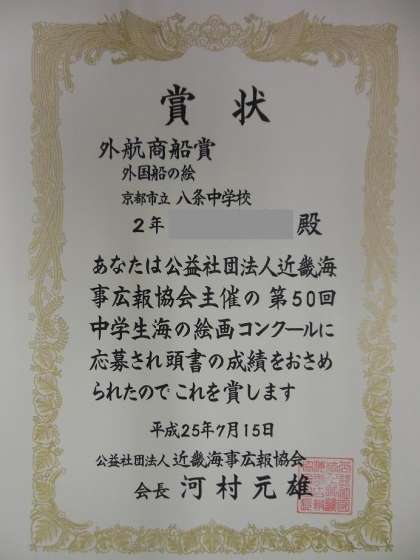 賞状
外航商船賞
外国船の絵
京都市立 八条中学校
2年 殿
あなたは公益社団法人近畿海
事広報協会主催の 第50回
中学生海の絵画コンクールに
応募され頭書の成績をおさめ
られたので これを賞します
平成25年7月15日
公益社団法人 近畿海事広報協会
会長 河村元雄